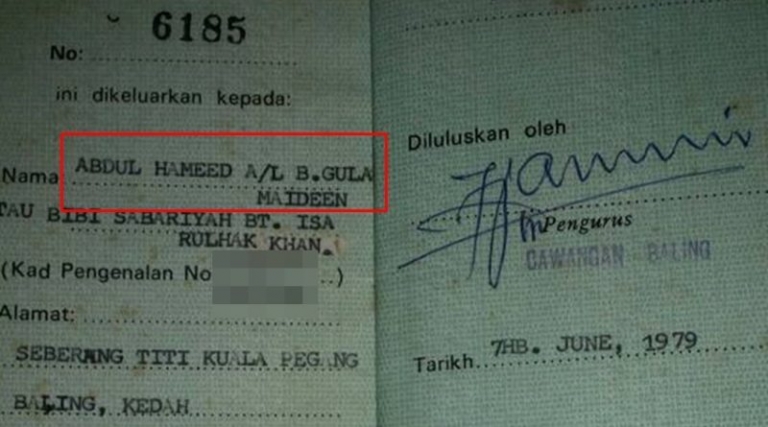 No: 6185
ini dikeluarkan kepada:
Nama ABDUL HAMEED A/L B.GULA
MAIDEEN
TAU BIBI SABARIYAH BT. ISA
RULHAK KHAN.
(Kad Pengenalan No ..)
Alamat:
SEBERANG TITI KUALA PEGANG
BALING, KEDAH
Diluluskan oleh
Pengurus
CAWANGAN BALING
Tarikh 7HB. JUNE, 1979